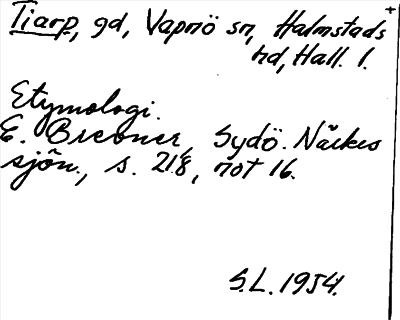 Tiarp, gd, Vapnö sn, Halmstads
hd, Hall. l.
Etymologi.
E. Brevner, Sydö. Närkes
sjön., s. 218, not 16.
S.L. 1954.